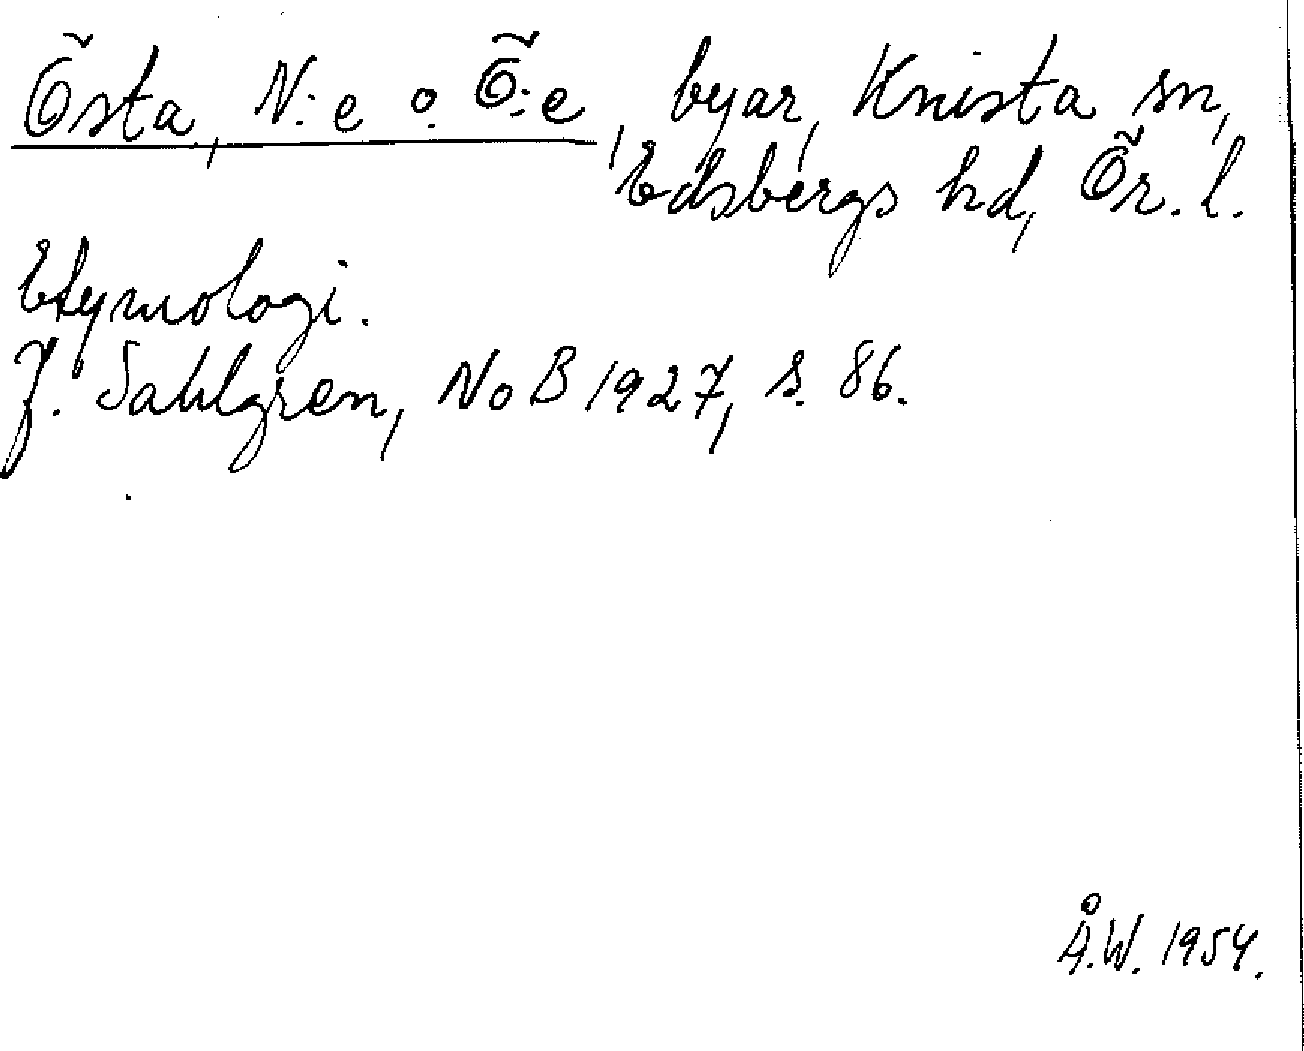 Östa, N:e o. Ö:e, byar, Knista sn,
Edsbergs hd, Ör. l.
Etymologi.
J. Sahlgren, NoB 1927, s. 86.
Å.W. 1954.